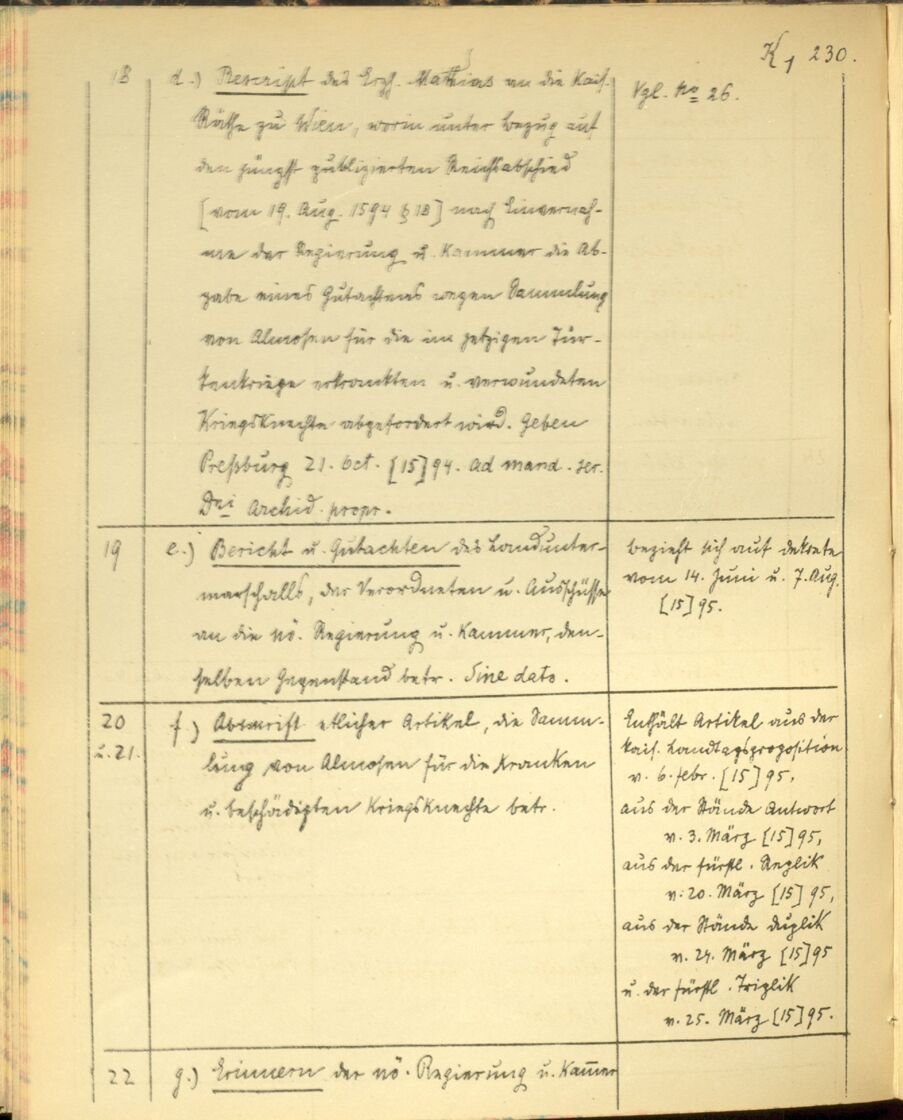 K1 230.
18 d.) Rescript des Erzh. Mathias an die Kais.
Räthe zu Wien, worin unter Bezug auf
den jüngst publizierten Reichsabschied
[vom 19. Aug. 1594 § 18] nach Einverneh-
me der Regierung u. Kammer die Ab-
gabe eines Gutachtens wegen Sammlung
von Almosen für die im jetzigen Tür-
kenkriege erkrankten u. verwundeten
Kriegsknechte abgefordert wird. Geben
Preßburg 21. Oct. [15]94. Ad mand. ser.
Dni Archid. propr.
Vgl. No 26.
19 e.) Bericht u. Gutachten des Landunter-
marschalls, der Verordneten u. Ausschüsse
an die nö. Regierung u. Kammer, den-
selben Gegenstand betr. Sine dato.
bezieht sich auf Dekrete
vom 14. Juni u. 7. Aug.
[15]95.
20 f.) Abschrift etlicher Artikel, die Samm-
u. 21. lung von Almosen für die Kranken
u. beschädigten Kriegsknechte betr.
Enthält Artikel aus der
kais. Landtagsproposition
v. 6. Febr. [15]95,
aus der Stände Antwort
v. 3. März [15]95,
aus der fürstl. Replik
v. 20. März [15]95,
aus der Stände Duplik
v. 24. März [15]95
u. der fürstl. Triplik
v. 25. März [15]95.
22 g.) Erinnern der nö. Regierung u. Kam̅er